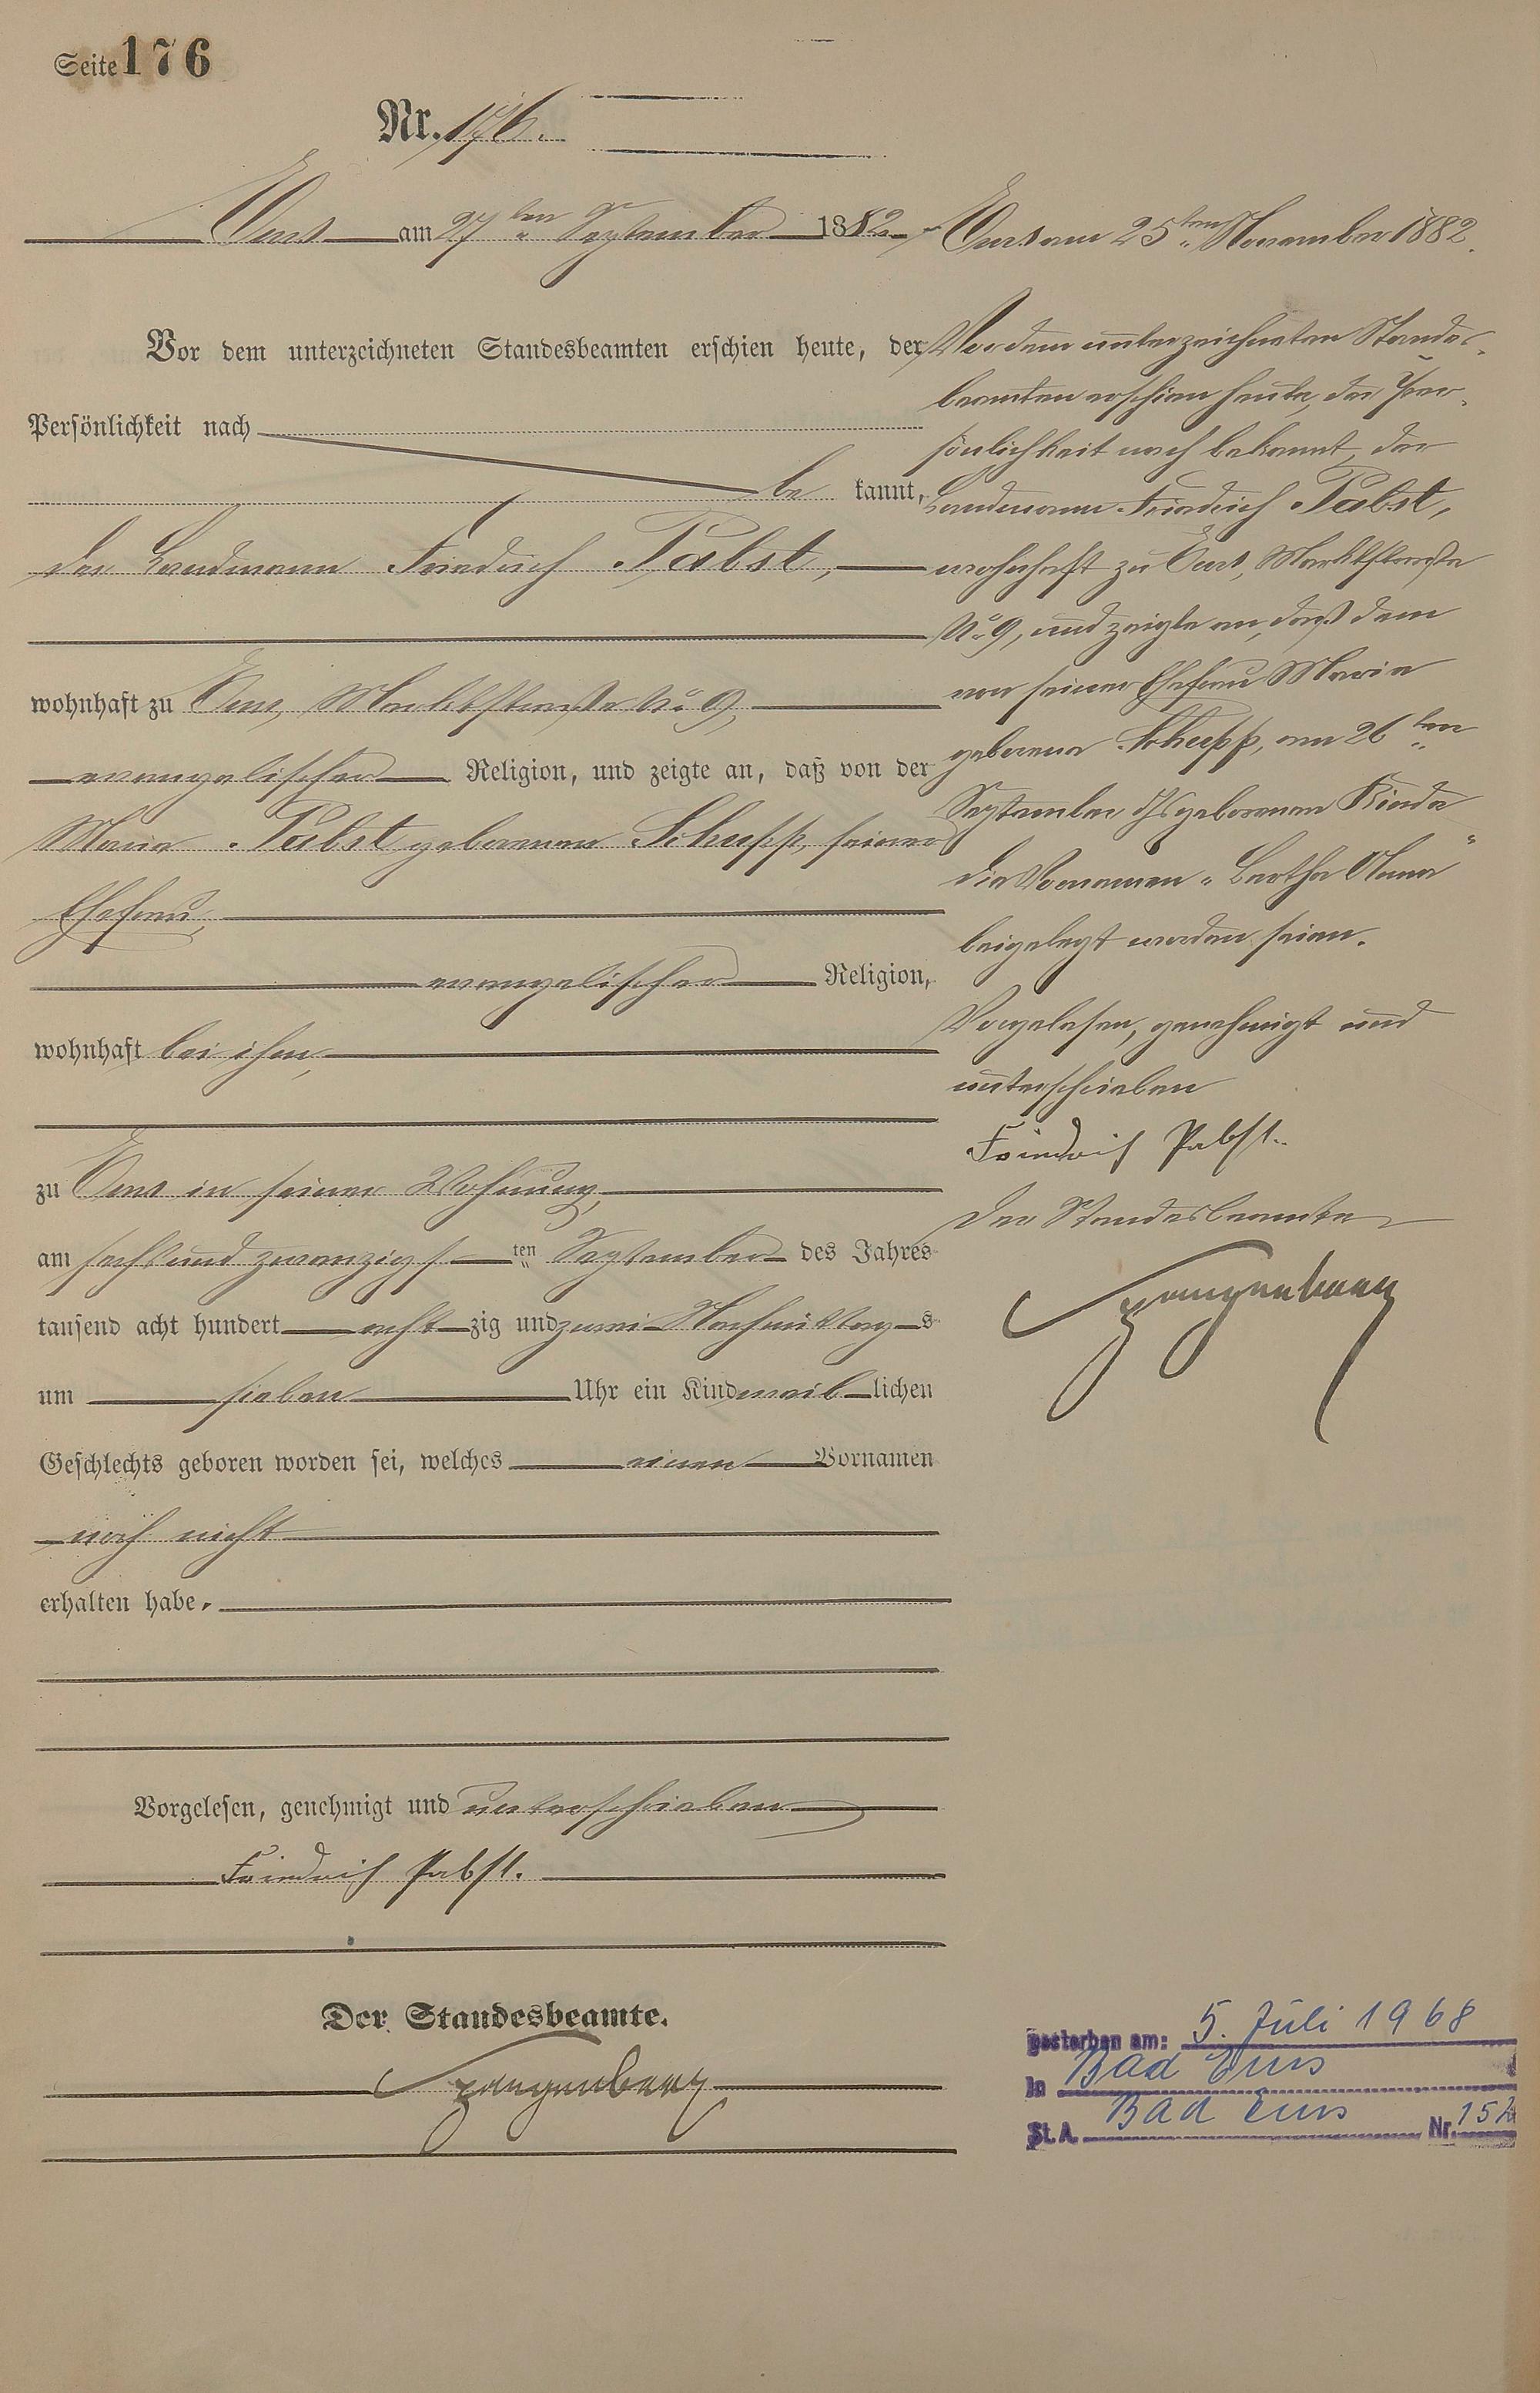 Seite 176
Nr. 176.
Ems am 27ten September 1882.
Vor dem unterzeichneten Standesbeamten erschien heute, der
Persönlichkeit nach
be kannt,
der Landmann Friedrich Pabst,
wohnhaft zu Ems, Marktstraße No 9,
evangelischer Religion, und zeigte an, daß von der
Maria Pabst geborenen Schupp, seiner
Ehefrau,
evangelischer Religion,
wohnhaft bei ihm,
zu Ems in seiner Wohnung,
am sechs und zwanzigsten September des Jahres
tausend acht hundert acht zig und zwei Nachmittags
um sieben Uhr ein Kind weiblichen
Geschlechts geboren worden sei, welches einen Vornamen
noch nicht
erhalten habe.
Vorgelesen, genehmigt und unterschrieben
Friedrich Pabst.
Der Standesbeamte.
Ems am 25ten November 1882.
Vor dem unterzeichneten Standes-
beamten erschien heute, der Per-
sönlichkeit nach bekannt, der
Landmann Friedrich Pabst,
wohnhaft zu Ems, Marktstraße
No 9, und zeigte an, daß dem
von seiner Ehefrau Maria
geborener Schupp, am 26ten
September ds Js geborenen Kinde
die Vornamen "Bertha Anna"
beigelegt worden seien.
Vorgelesen, genehmigt und
unterschrieben
Friedrich Pabst.
Der Standesbeamte
gestorben am: 5. Juli 1968
in Bad Ems
St. A. Bad Ems Nr. 152